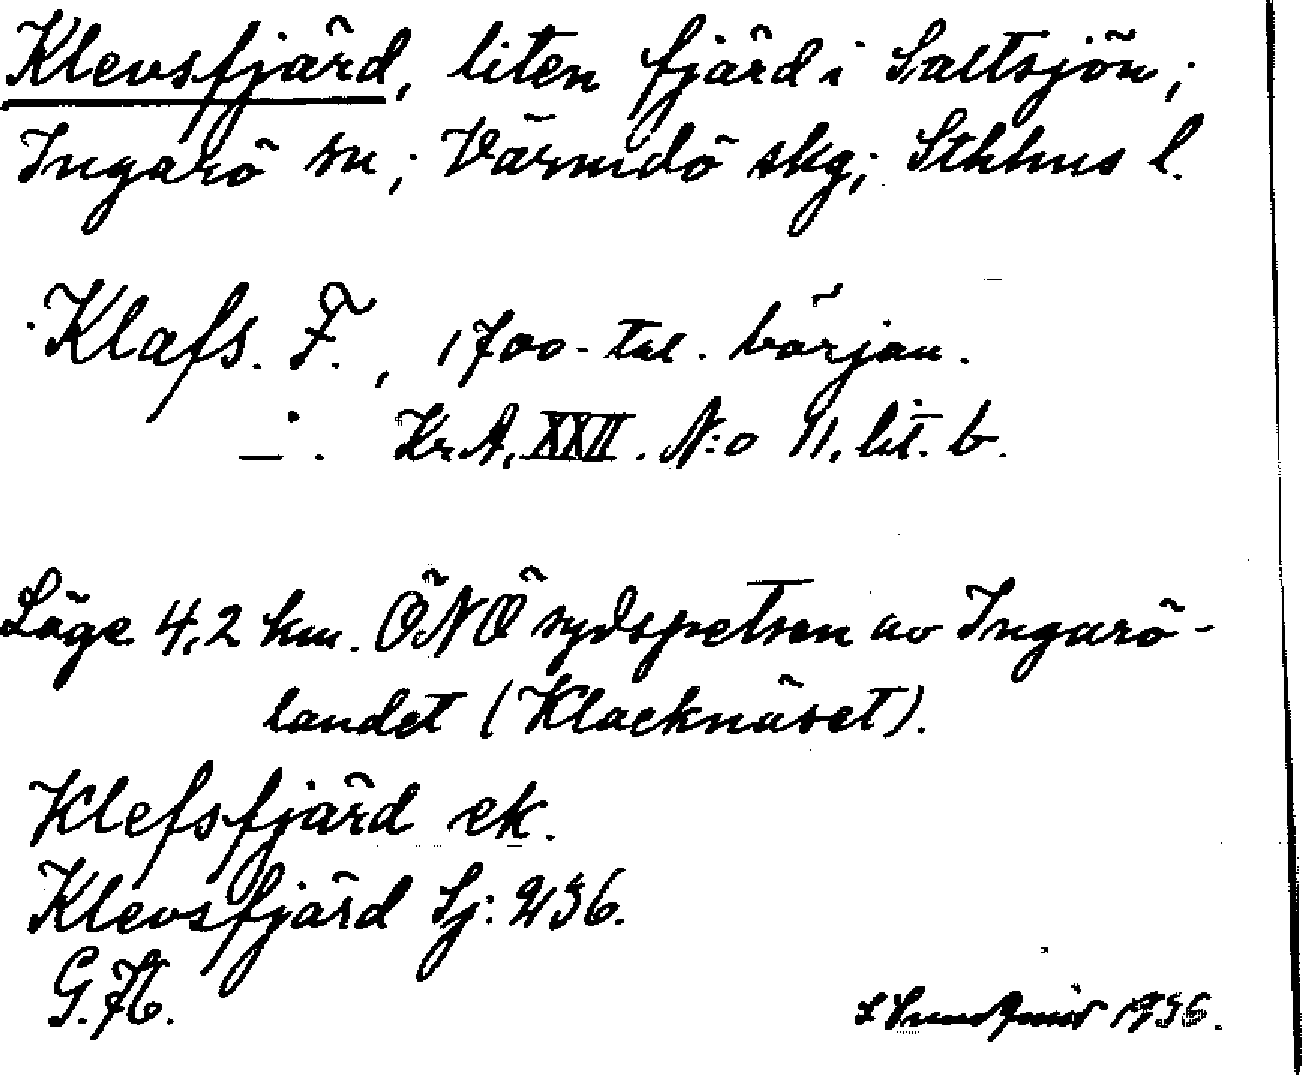 Klevsfjärd, liten fjärd i Saltsjön;
Ingarö sn; Värmdö skg; Sthlms l.
Klafs. F., 1700-tal. början.
— . Kr.A. XXII. N:o 11. lit. b.
Läge 4,2 km. ÖNÖ sydspetsen av Ingarö-
landet (Klacknäset).
Klefsfjärd ek.
Klevsfjärd Sj: 236.
G.H.
1936.